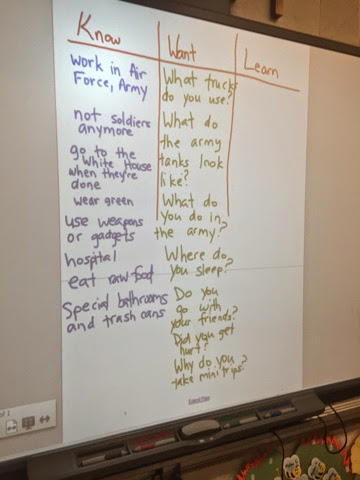 Know
Want
Learn
Work in Air
Force, Army
not soldiers
anymore
go to the
White House
when they're
done
wear green
use weapons
or gadgets
hospital
eat raw food
Special bathrooms
and trash cans
What trucks
do you use?
What do
the army
tanks look
like?
What do
you do in
the army?
Where do
you sleep?
Do you
go with
your friends?
Did you get
hurt?
Why do you
take mini trips?